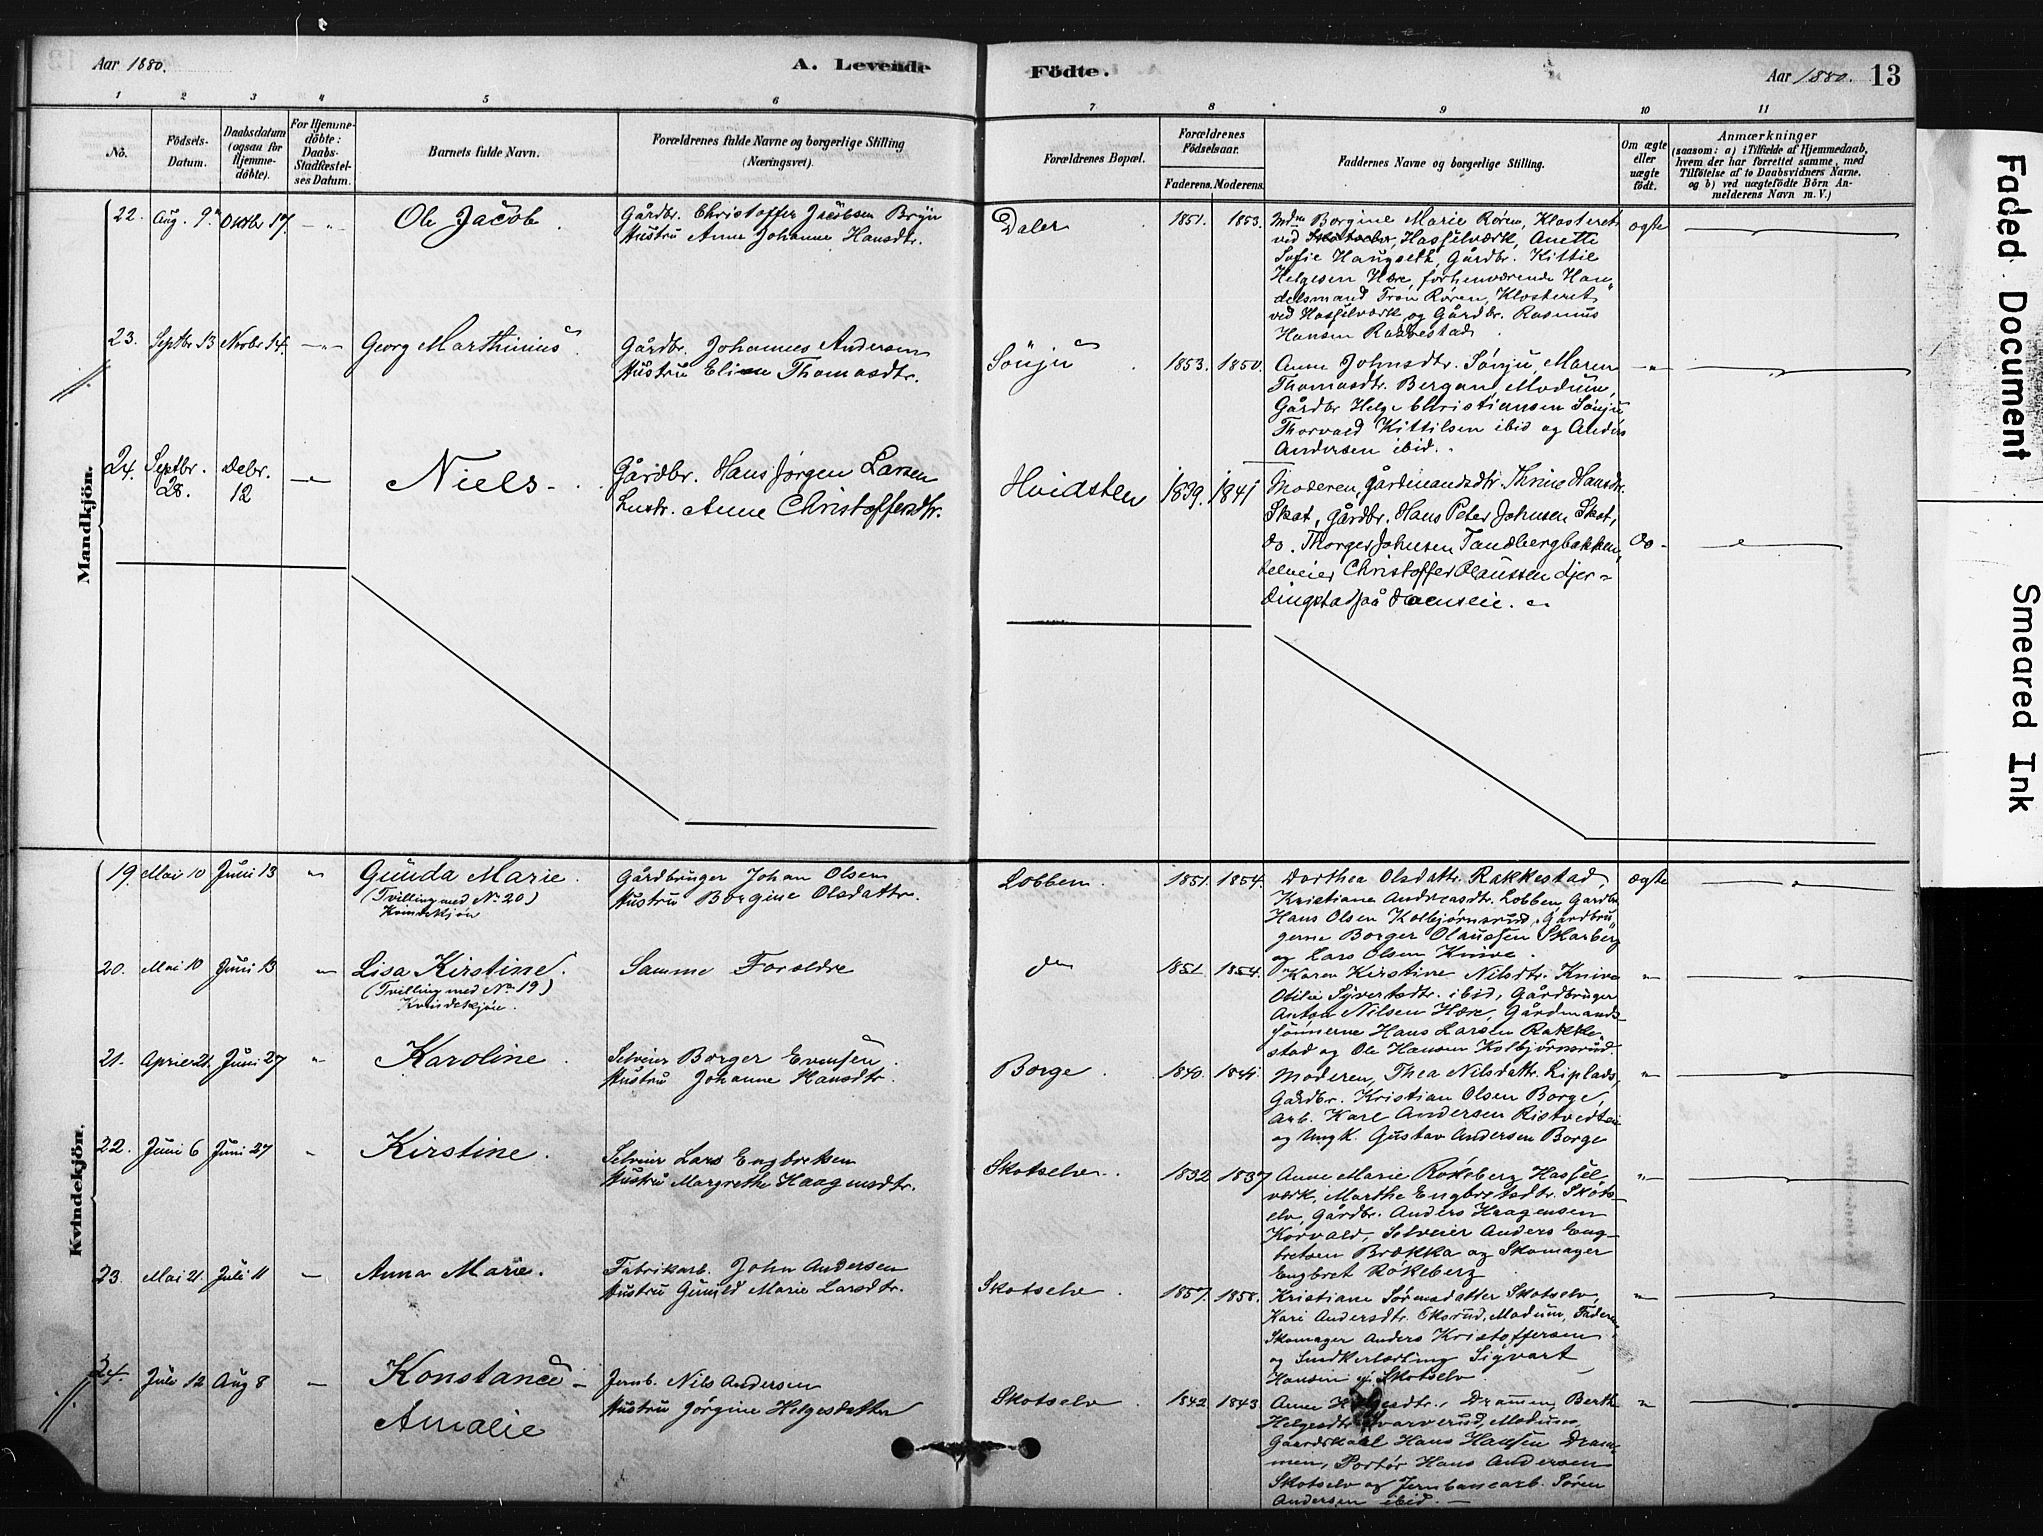 Aar 1880.
A. Levende
Födte.
Aar 1880. 13
1 2 3 4 5 6 7 8 9 10 11
No.
Födsels-
Datum.
Daabsdatum
(ogsaa for
Hjemme-
döbte).
For Hjemme-
döbte:
Daabs-
Stadfæstel-
ses Datum.
Barnets fulde Navn.
Forældrenes fulde Navne og borgerlige Stilling
(Næringsvei).
Forældrenes Bopæl.
Forældrenes
Födselsaar.
Faderens. Moderens.
Faddernes Navne og borgerlige Stilling.
Om ægte
eller
uægte
födt.
Anmærkninger
(saasom: a) i Tilfælde af Hjemmedaab,
hvem der har forrettet samme, med
Tilföielse af to Daabsvidners Navne,
og b) ved uægtefödte Börn An-
melderens Navn m. V.)
Mandkjön.
22. Aug. 9 Oktbr 17. Ole Jacob
Gårdbr. Christoffer Jacobsen Bryn
Hustru Anne Johanne Hansdtr.
Daler 1851. 1853.
Borgine Marie Røren, Klosteret
ved Hasselværk, Anette
Sofie Haugseth, Gårdbr. Kittil
Helgesen Hære, forhenværende Han
delsmand Tron Røren, Klosteret
ved Hasselværk og Gårdbr. Rasmus
Hansen Rakkestad
ægte
23. Septbr 13 Novbr 14. Georg Marthinius
Gårdbr. Johannes Andersen
Hustru Eline Thomasdtr.
Sönju 1853. 1850.
Anne Johnsdtr. Sønju, Maren
Thomasdtr. Bergan Modum,
Gårdbr Helge Christiansen Sönju
Thorvald Kittilsen ibid og Anders
Andersen ibid.
24. Septbr. 28. Decbr. 12 Niels
Gårdbr. Hans Jørgen Larsen
Hustr. Anne Christoffersdtr.
Hvidsten 1839. 1841
Moderen, Gårdmandsdtr. Thrine Hansdtr.
Skat, Gårdbr. Hans Peter Johnsen Skat,
do. Thorger Johnsen Tandbergbakken,
Selveier Christoffer Claussen Gjer-
dingstad på Hoenseie.
do
Kvindekjön.
19. Mai 10 Juni 13 Gunda Marie.
(Tvilling med No 20)
Kvindekjön
Gårdbruger Johan Olsen
Hustru Borgine Olsdattr.
Lobben. 1851. 1854.
Dorthea Olsdattr. Rakkestad,
Kristiane Andreasdtr. Lobben, Gårdbr
Hans Olsen Kolbjørnsrud, Gårdbru
gerne Borger Olaussen Skarberg
og Lars Olsen Knive.
ægte
20. Mai 10 Juni 13 Lisa Kirstine.
(Tvilling med No 19)
Kvindekjön.
Samme Forældre
do 1851. 1854.
Karen Kirstine Nilsdtr. Knive
Otilie Syvertsdtr. ibid, Gårdbruger
Anton Nilsen Hære, Gårdmands-
sønnerne Hans Larsen Rakke-
stad og Ole Hansen Kolbjørnsrud.
21. April 21. Juni 27 Karoline
Selveier Borger Evensen
Hustru Johanne Hansdtr.
Borge 1840. 1841.
Moderen, Thea Nilsdattr. Liplads,
Gårdbr. Kristian Olsen Borge,
Arb. Karl Andersen Ristvedtei
og Ungk. Gustav Andersen Borge
22. Juni 6 Juni 27 Kirstine.
Selveier Lars Engbretsen
Hustru Margrethe Haagensdtr.
Skotselv. 1832 1837
Anne Marie Røkeberg Hassel-
værk, Marthe Engbretsdtr. Skots-
elv, Gårdbr. Anders Haagensen
Korvald, Selveier Anders Eng-
bretsen Brækka og Skomager
Engbret Røkeberg
23. Mai 21. Juli 11 Anna Marie.
Fabrikarb. John Andersen
Hustru Gunild Marie Larsdtr.
Skotselv 1857. 1858.
Kristiane Sørensdatter Skotselv,
Kari Andersdtr. Modum, Faderen,
Skomager Anders Kristoffersen
og Smedlærling Sigvart
Hansen Skotselv.
24. Juli 12 Aug 8 Konstance
Amalie
Jernb. Nils Andersen
Hustru Jörgine Helgesdatter
Skotselv 1842 1843
Anne Helgesdtr. Drammen, Berth
Helgesdtr. Modum,
Gaardskarl Hans Hansen Dram-
men, Portør Hans Andersen
Skotselv og Jernbanearb. Søren
Andersen ibid.
Faded Document
Smeared Ink